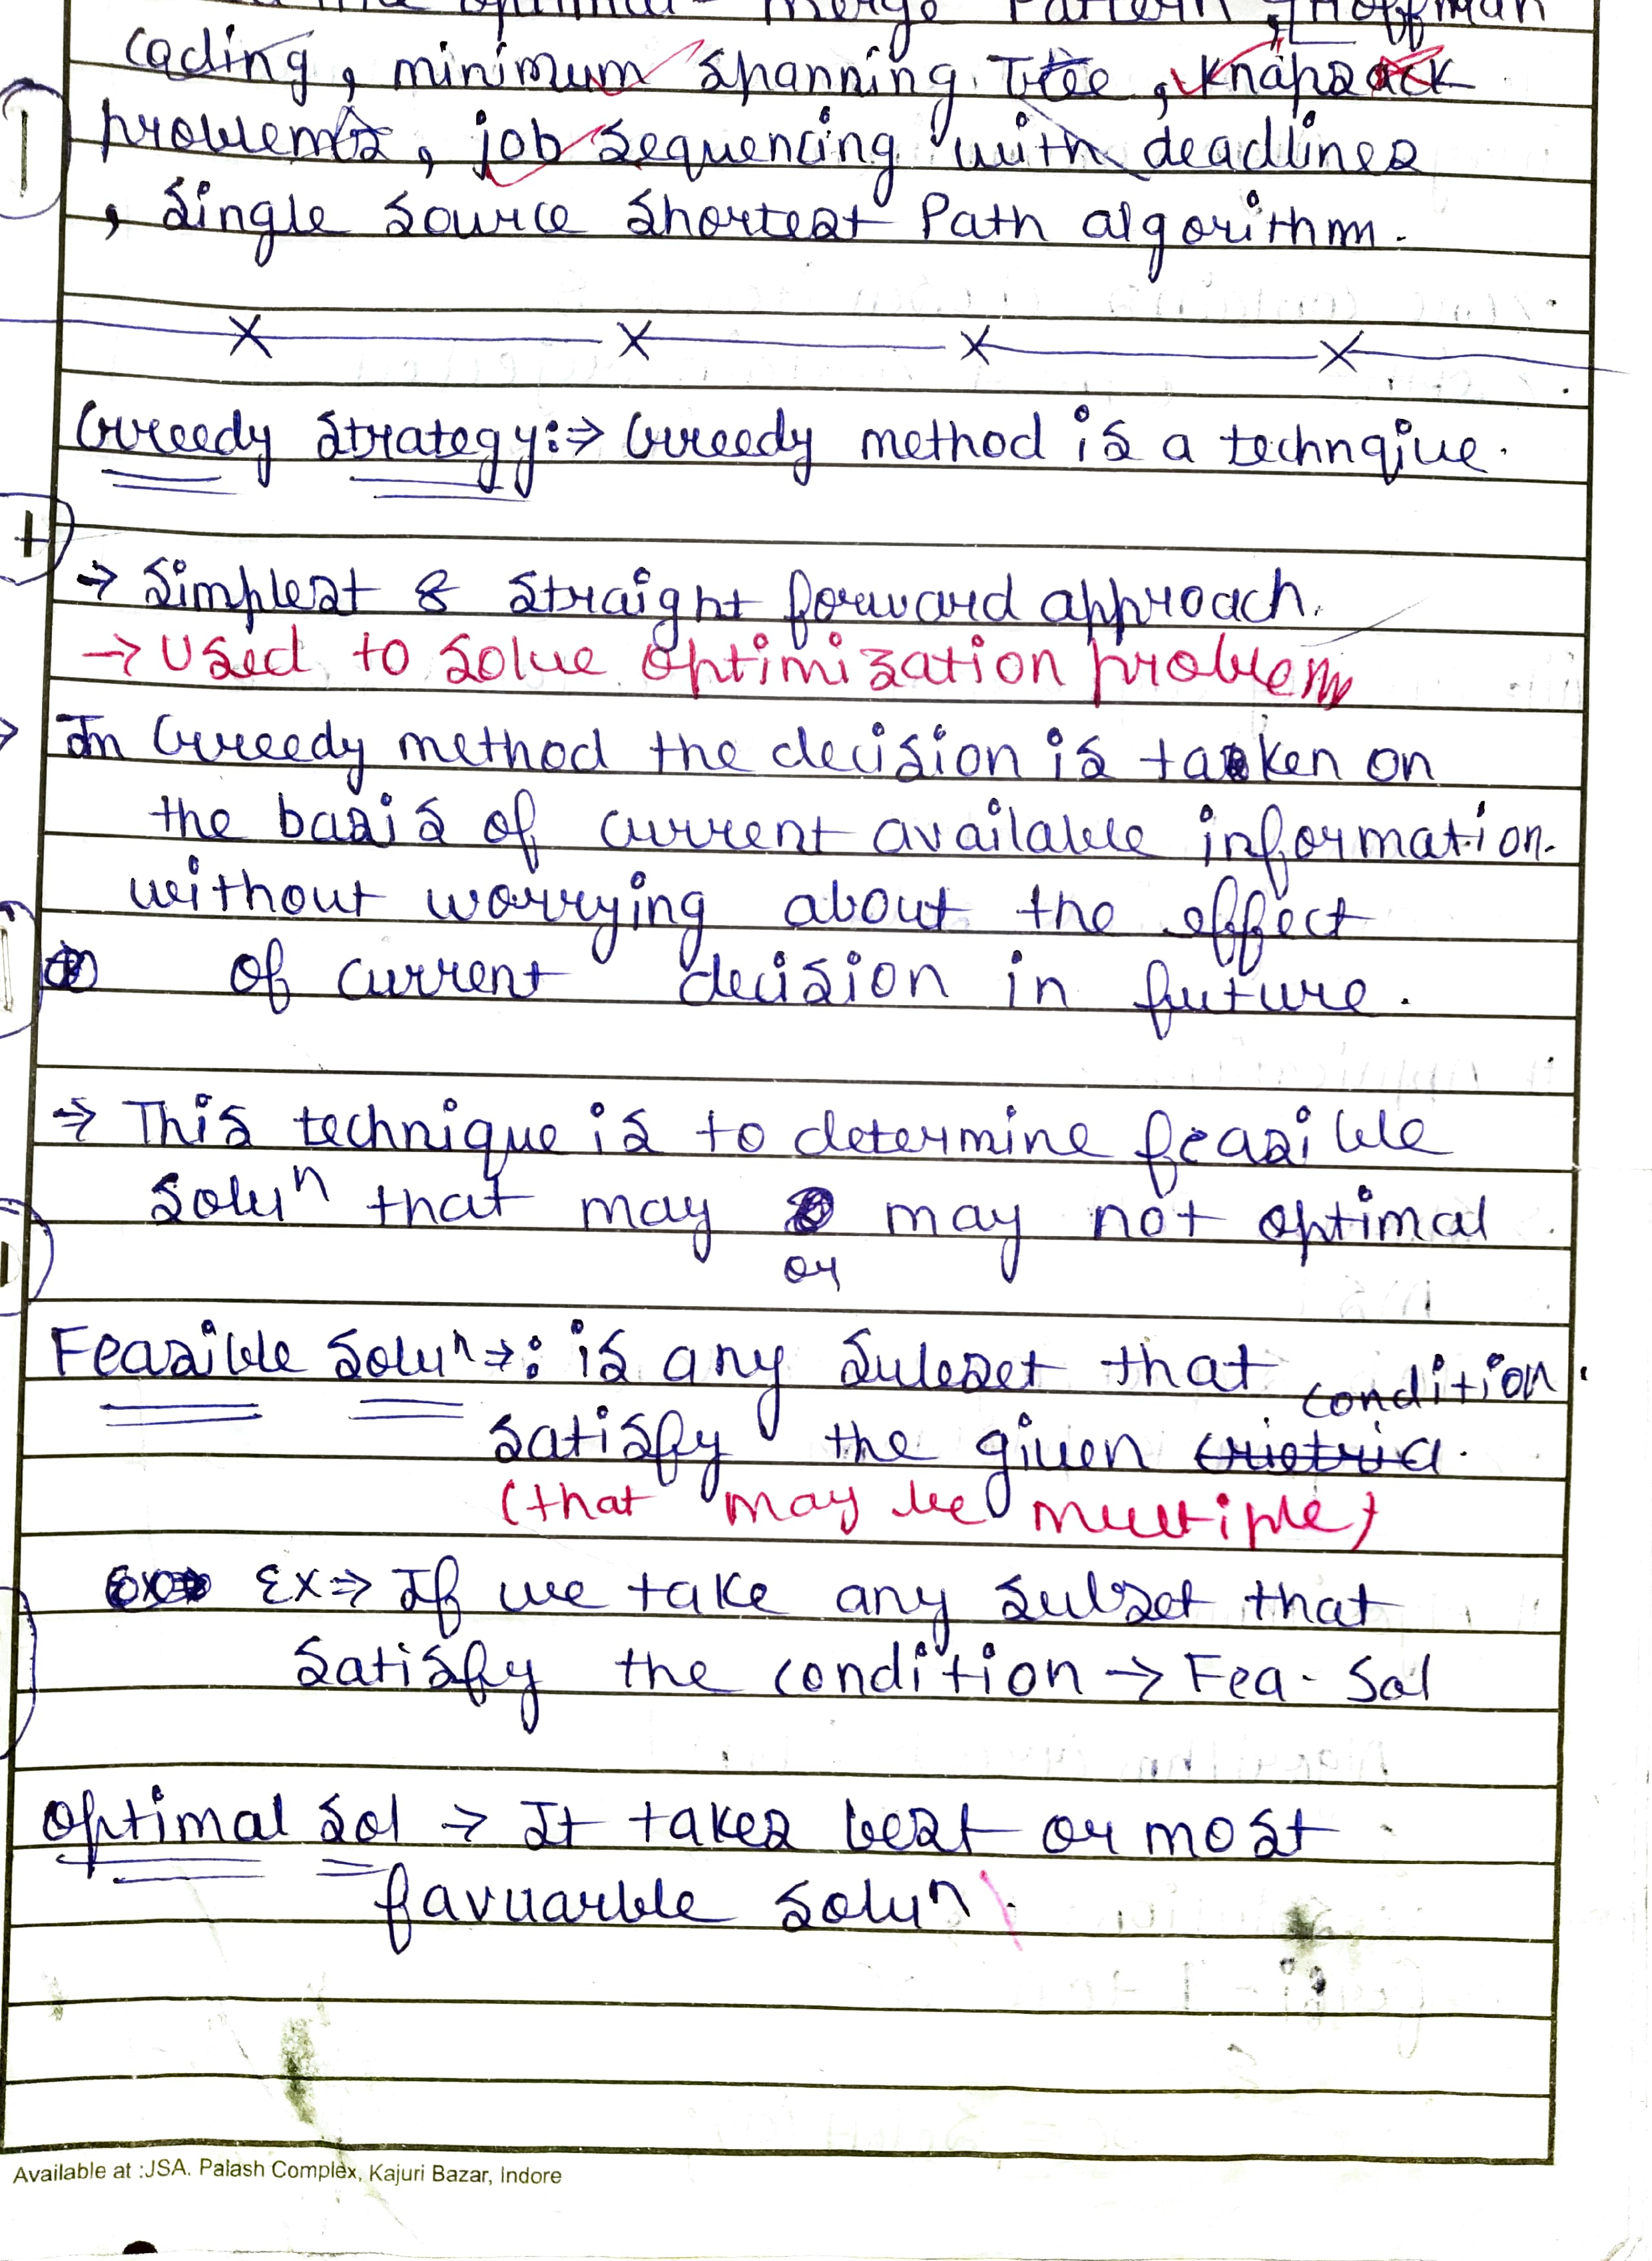 optimal Merge Pattern, Hoffman
coding, minimum spanning Tree, knapsack
problems, job sequencing with deadlines
, single source shortest Path algorithm.
Greedy strategy:⇒ Greedy method is a technqiue.
→ simplest & straight forward approach.
→ Used to solve optimization problem
In Greedy method the decision is taken on
the basis of current available information.
without worrying about the effect
of current decision in future.
⇒ This technique is to determine feasible
soluⁿ that may or may not optimal
Feasible soluⁿ→: is any subset that condition
satisfy the given crietria.
(that may be multiple)
Ex⇒ If we take any subset that
satisfy the condition → Fea- Sol
optimal sol → It takes best or most
favuarble soluⁿ.
Available at :JSA. Palash Complex, Kajuri Bazar, Indore